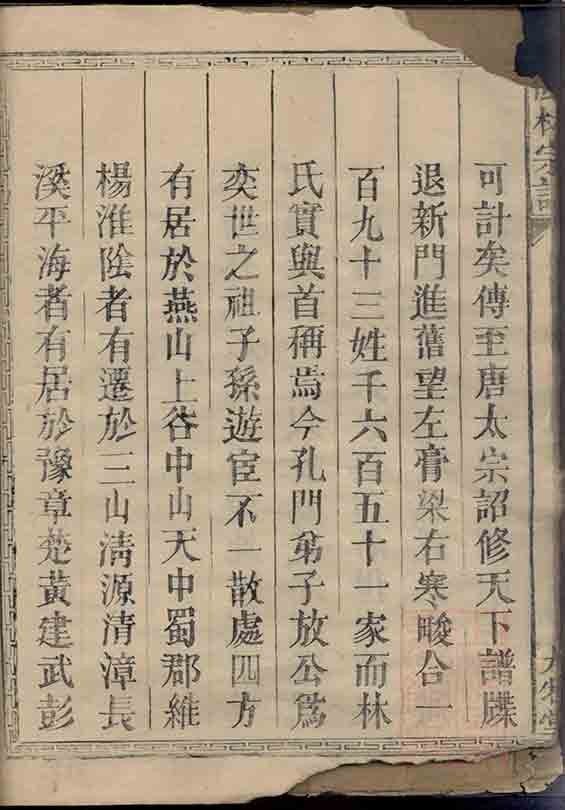 可計矣傳至唐太宗詔修天下譜牒
退新門進舊望左膏粱右寒畯合一
百九十三姓千六百五十一家而林
氏實與首稱焉今孔門弟子放公爲
奕世之祖子孫遊宦不一散處四方
有居於燕山上谷中山天中蜀郡維
楊淮陰者有遷於三山清源清漳長
溪平海者有居於豫章楚黃建武彭
林宗譜